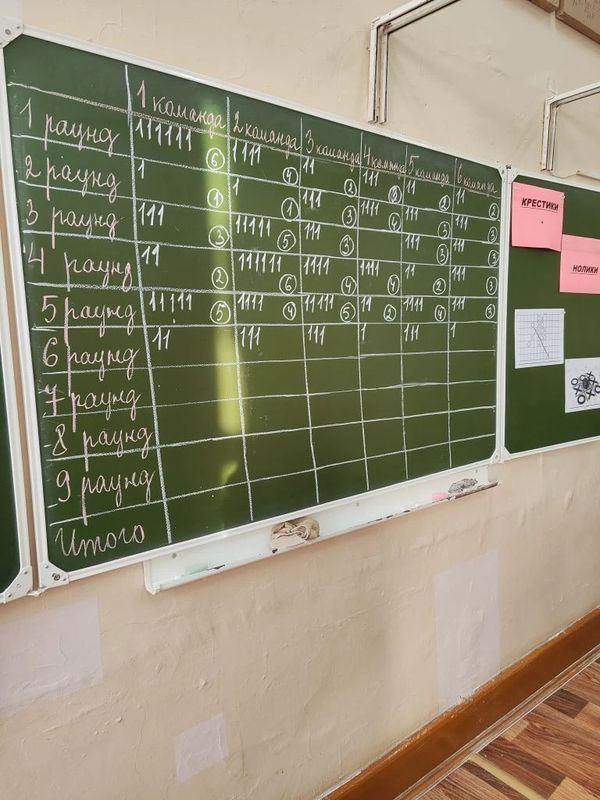 1 команда 2 команда 3 команда 4 команда 5 команда 6 команда
1 раунд 111111 6 1111 4 11 2 111 3 11 2 11 2
2 раунд 1 1 1 1 111 3 1111 4 111 3 111 3
3 раунд 111 3 11111 5 111 3 111 3 111 3
4 раунд 11 2 111111 6 1111 4 1111 4 11 2 111 3
5 раунд 11111 5 1111 4 11111 5 11 2 1111 4 111 3
6 раунд 11 111 111 1 111 1
7 раунд
8 раунд
9 раунд
Итого
КРЕСТИКИ
НОЛИКИ